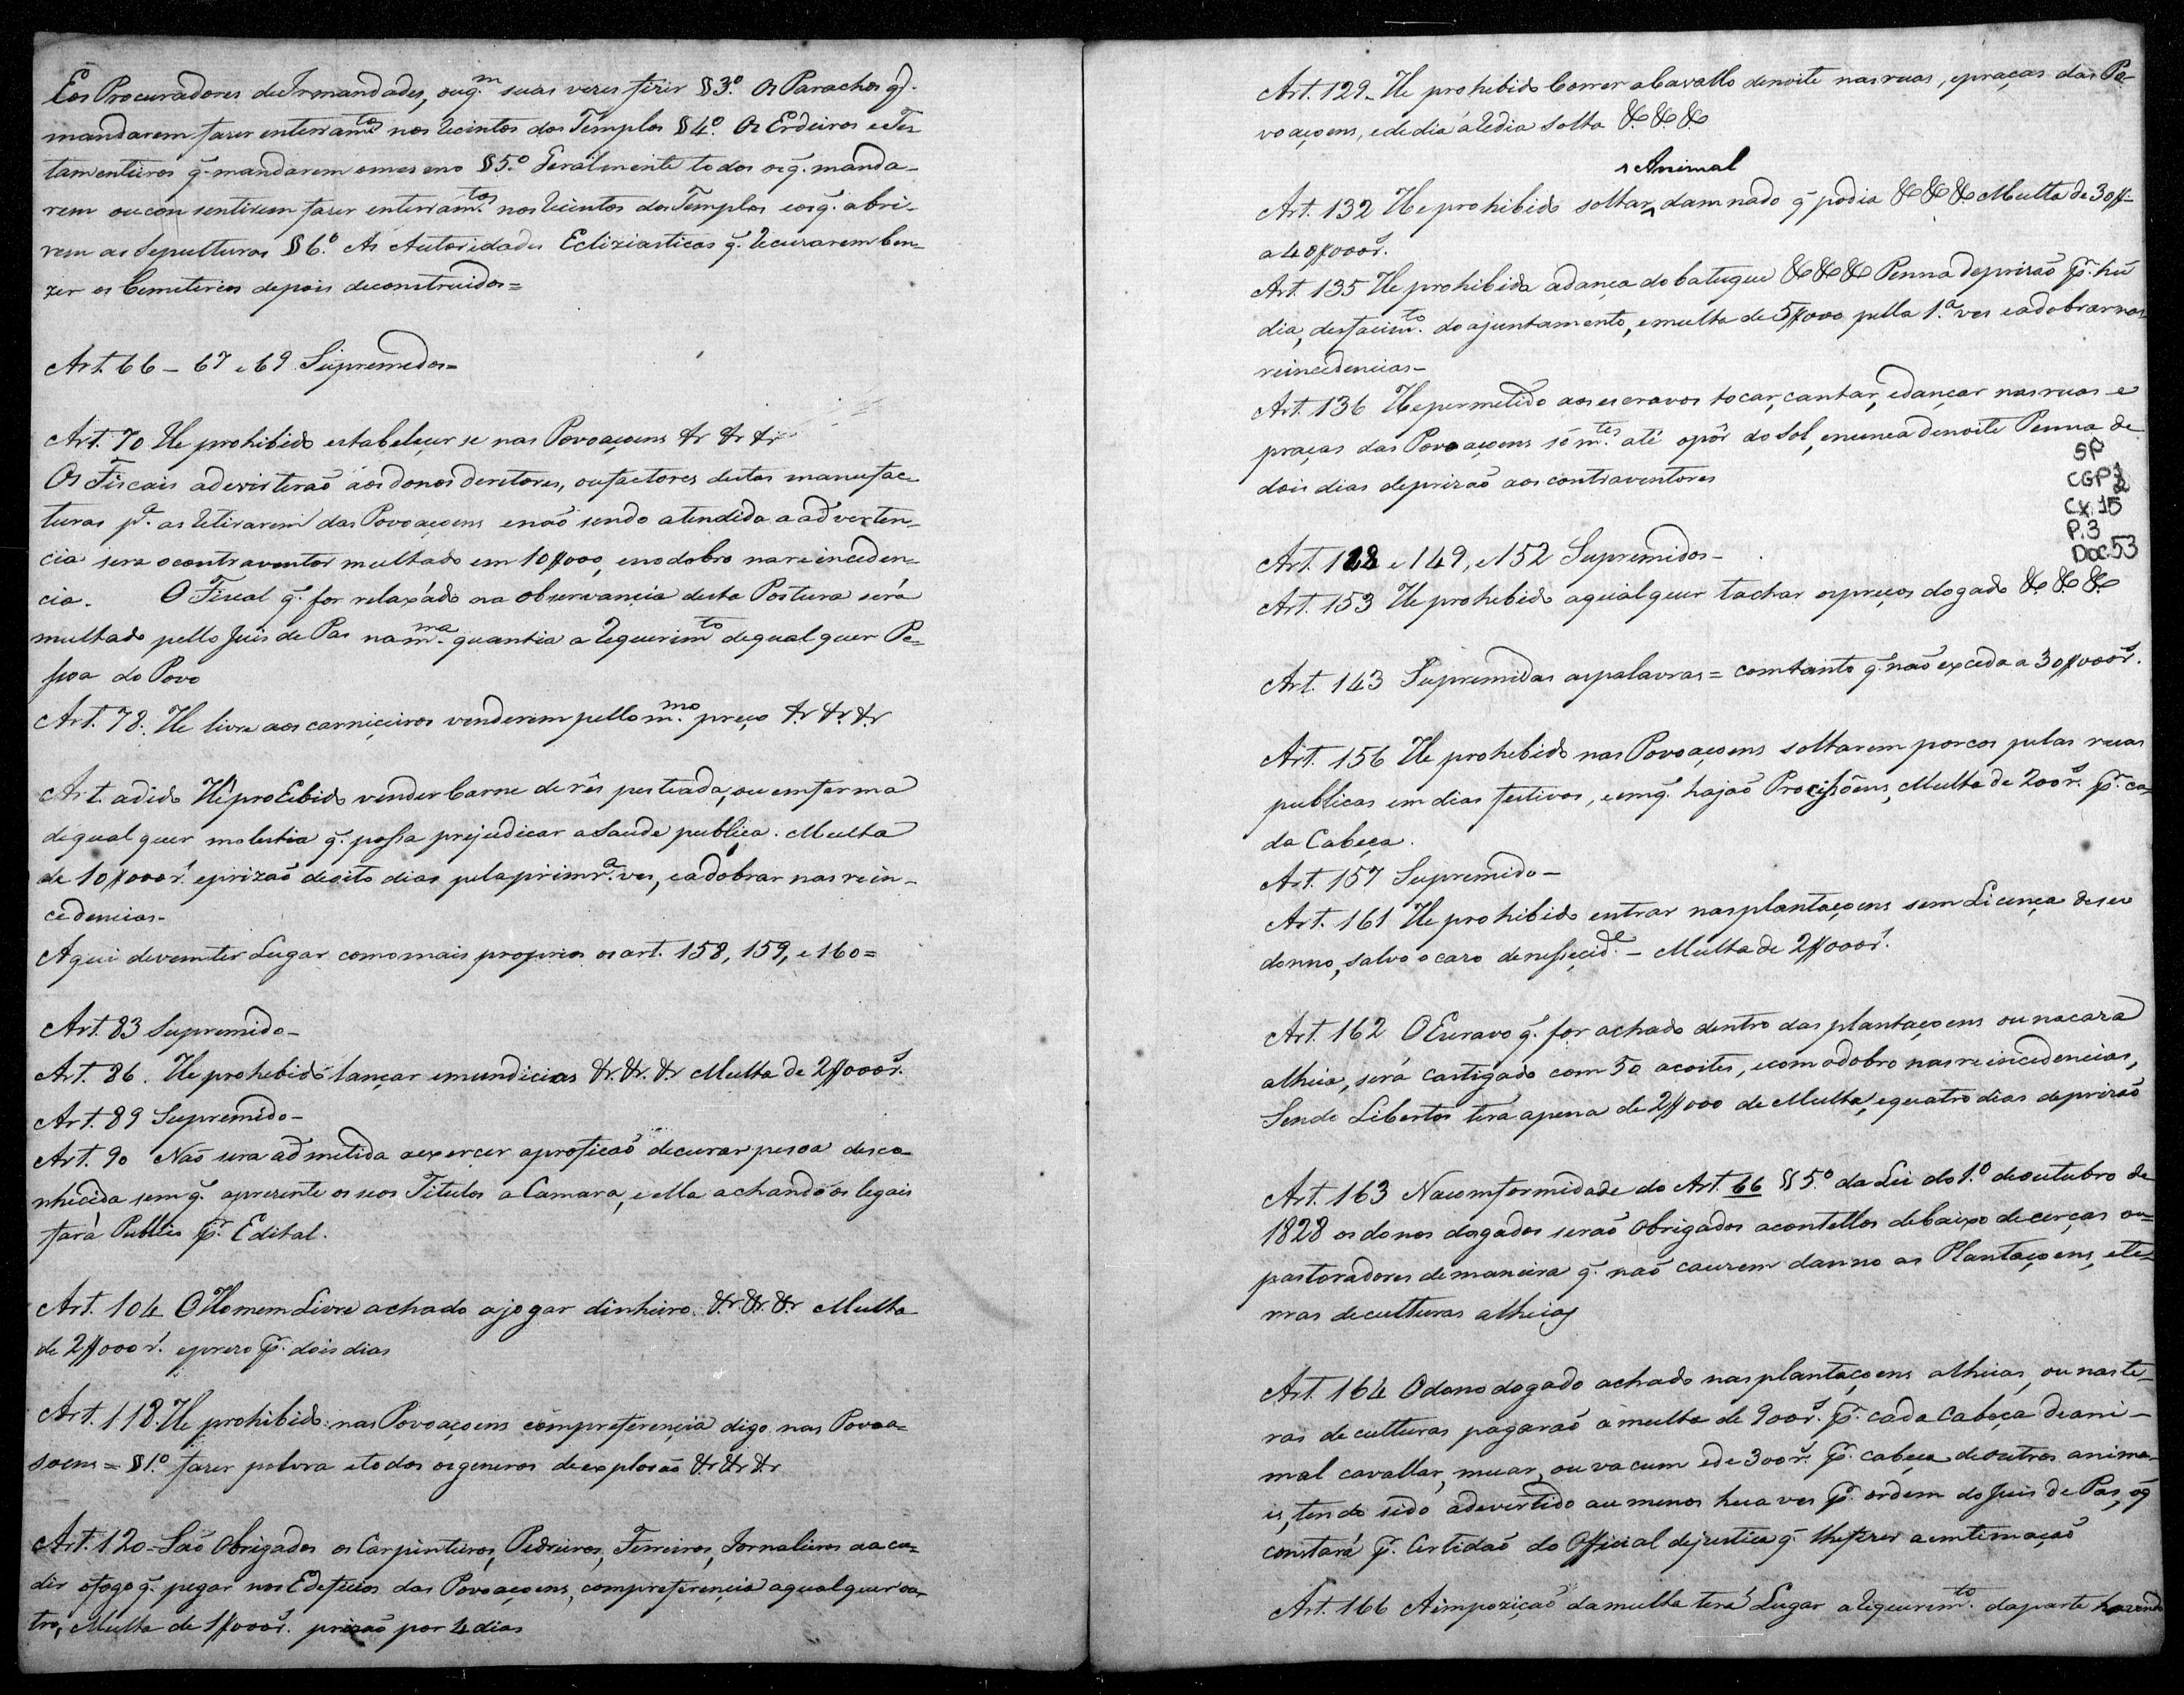 Eos Procuradores de Irmandades, ouq.m suas vezes fizir §3.º Os Parachos q̃.
mandarem fazer enterramtos nos recintos dos Templos §4.º Os Erdeiros e Tes
tamenteiros q̃ mandarem omesmo §5.º Geralmente todos osq̃. manda-
rem ou consentirem fazer enterram.tos nos recintos dos Templos eosq̃. abri-
rem as Sepulturas §6.º As Autoridades Ecliziasticas q̃. recuzarem ben-
zer os Cemeterios depois deconstruidos=
Art. 66 - 67 e 69 Supremedos=
Art. 70 He prohibido estabeleçer se nas Povoaçoens &r &r &r
Os Fiscais adevirteraõ aos donos deretores, oufactores destas manufac-
turas p.a as retirarem das Povoaçoens enaõ sendo atendida a adverten-
cia sera ocontraventor multado em 10$000, enodobro nareinceden-
cia. O Fiscal q̃. for relaxádo na observancia desta Postura será
multado pello Juis de Pas nam.ma quantia a requerimto dequalquer Pe-
ssoa do Povo
Art. 78. He livre aos carniçeiros venderem pello m.mo preço &r &r &r
Art. adido Hé proEibido vender Carne de rês pesteada, ou emferma
dequalquer molestia q̃. possa prejudicar aSaude publiça. Multa
de 10$000r.s eprizaõ deoito dias pelaprimr.a ves, eadobrar nas rein-
cedencias-
Aqui devemter Lugar comomais proprios osart. 158, 159, e 160=
Art. 83 Supremido-
Art. 86. He prohebido lançar emundicias &r. &r. &r Multa de 2$000r.s
Art. 89 Supremido-
Art. 90 Naõ sera admetida aexercer aprofiçaõ decurar pesoa desco-
nhecida sem q̃. aprezente os seos Titulos a Camara, e ella achando os legais
fará Publico p.r Edital.
Art. 104 O Homem Livre achado ajogar dinheiro. &r &r. &r Multa
de 2$000 r.s eprezo p.r dois dias
Art. 118. He prohibido nas Povoaçoens compreferençia digo nas Povoa=
soens = §1.º fazer polvra etodos osgeneros deexplozaõ &r &r &r
Art. 120- Saõ Obrigados os Carpinteiros, Pedreiros, Ferreiros, Jornaleiros aacu=
dir ofogo q̃. pegar nos Edeficios das Povoaçoens, compreferençia aqualquer ou
tro, Multa de 1$000r.s prizaõ por 4 dias
Art. 129- He prohebido Correr aCavallo denoite nas ruas, epraças das Po-
voaçoens, ede dia áredia solta &. &. &
Animal
Art. 132 He prohibido soltar damnado q̃ podia & & & Multa de 30$
a 40$000r.s
Art. 135 He prohibida adança do batuque & & & Penna deprizaõ p.r hũ
dia, desfacim.to do ajuntamento, emulta de 5$000 pella 1.a ves eadobrar nas
reincedencias-
Art. 136 He permetido aos escravos tocar, cantar, edançar nas ruas e
praças das Povoaçoens sóm.tes até opôr do Sol, enunca denoite Penna de
dois dias deprizaõ aos contraventores
SP
CGP1
2
CX.15
P.3
DOC.53
Art. 128 e 149, e 152 Supremidos-
Art. 153 He prohebido aqualquer tachar ospreços dogado &. &. &
Art. 143 Supremidas aspalavras = comtanto q̃. naõ exceda a 30$000r.s
Art. 156 He prohebido nas Povoaçoens soltarem porcos pelas ruas
publicas em dias festivos, eemq̃. hajaõ Procissõens, Multa de 200r.s p.r ca-
da Cabeça.
Art. 157 Supremido-
Art. 161 He prohibido entrar nasplantaçoens sem Licença deseu
donno, salvo o cazo denesseçid.e - Multa de 2$000r.s
Art. 162 OEscravo q̃. for achado dentro das plantaçoens ou nacaza
alheia, será castigado com 50 acoites, ecom odobro nas reincedencias,
Sendo Libertos tera apena de 2$000 de Multa, equatro dias deprizaõ
Art. 163 Naconformidade do Art. 66 §5.º da Lei do 1.º deoutubro de
1828 os donos dosgados seraõ Obrigados acontellos debaixo decerças ou=
pastoradores demaneira q̃. naõ cauzem danno as Plantaçoens, ete-
rras deculturas alheias
Art. 164 Odono dogado achado nas plantaçoens alheias, ou naste-
ras de culturas pagaraõ a multa de 900r.s p.r cada Cabeça deani-
mal cavallar, muar, ou vacum ede 300r.s p.r cabeça de outros anima-
is, tendo sido adevirtido aumenos hua ves p.r ordem do Juis de Pas, oq̃
constará p.r Certidaõ do Official dejustiça q̃ lhefizer aemtimaçaõ
Art. 166 Aimpoziçaõ damulta terá Lugar arequerem.to daparte havendo